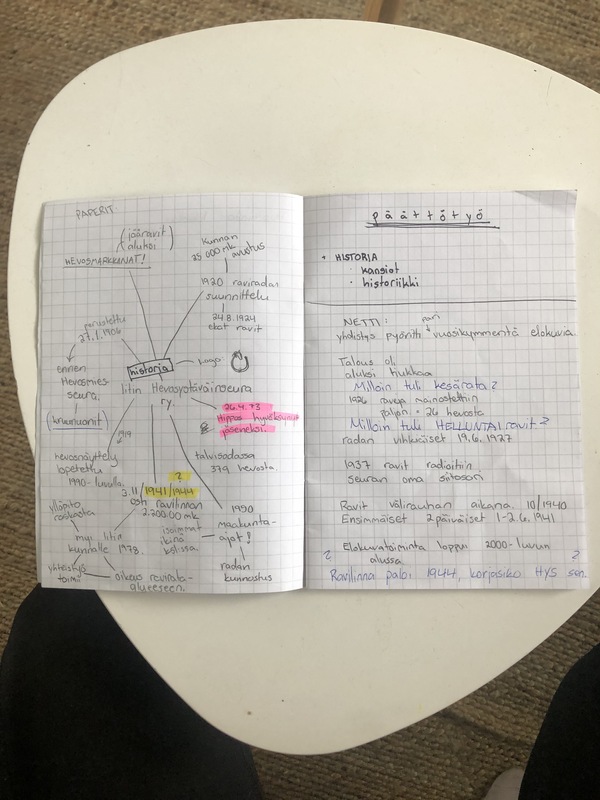 PAPERIT
(jääravit
aluksi)
HEVOSMARKKINAT!
Kunnan
25 000 mk
avustus
1920 raviradan
suunnittelu
24.8.1924
ekat ravit
perustettu
27.1.1906
historia
Logo:
Iitin Hevosystäväinseura
ry.
ennen
Hevosmies
seura.
(kruununorit)
1919
hevosnäyttely
lopetettu
1990-luvulla,
26.4.73
Hippos hyväksynyt
jäseneksi.
talvisodassa
379 hevosta.
?
3.11/1941/1944
osti ravilinnan
2.200.00 mk
isoimmat
ikinä
1990
maakunta-
ajot!
radan
kunnostus
ylläpito
raskasta
myi Iitin
kunnalle 1978.
yhdistys
toimi
oikeus ravirata-
alueeseen.
päättötyö
HISTORIA
· kansiot
· historiikki
NETTI:
pari
yhdistys pyöritti vuosikymmentä elokuvia.
Talous oli
aluksi tiukkaa
Milloin tuli kesärata?
1926 raveja mainostettiin
paljon · 26 hevosta
Milloin tuli HELLUNTAIravit?
radan vihkiäiset 19.6.1927
1937 ravit radioitiin
seuran oma
Ravit välirauhan aikana. 10/1940
Ensimmäiset 2 päiväiset 1-2.6.1941
Elokuvatoiminta loppui 2000-luvun
alussa.
? ?
Ravilinna paloi 1944, korjasiko HYS sen.